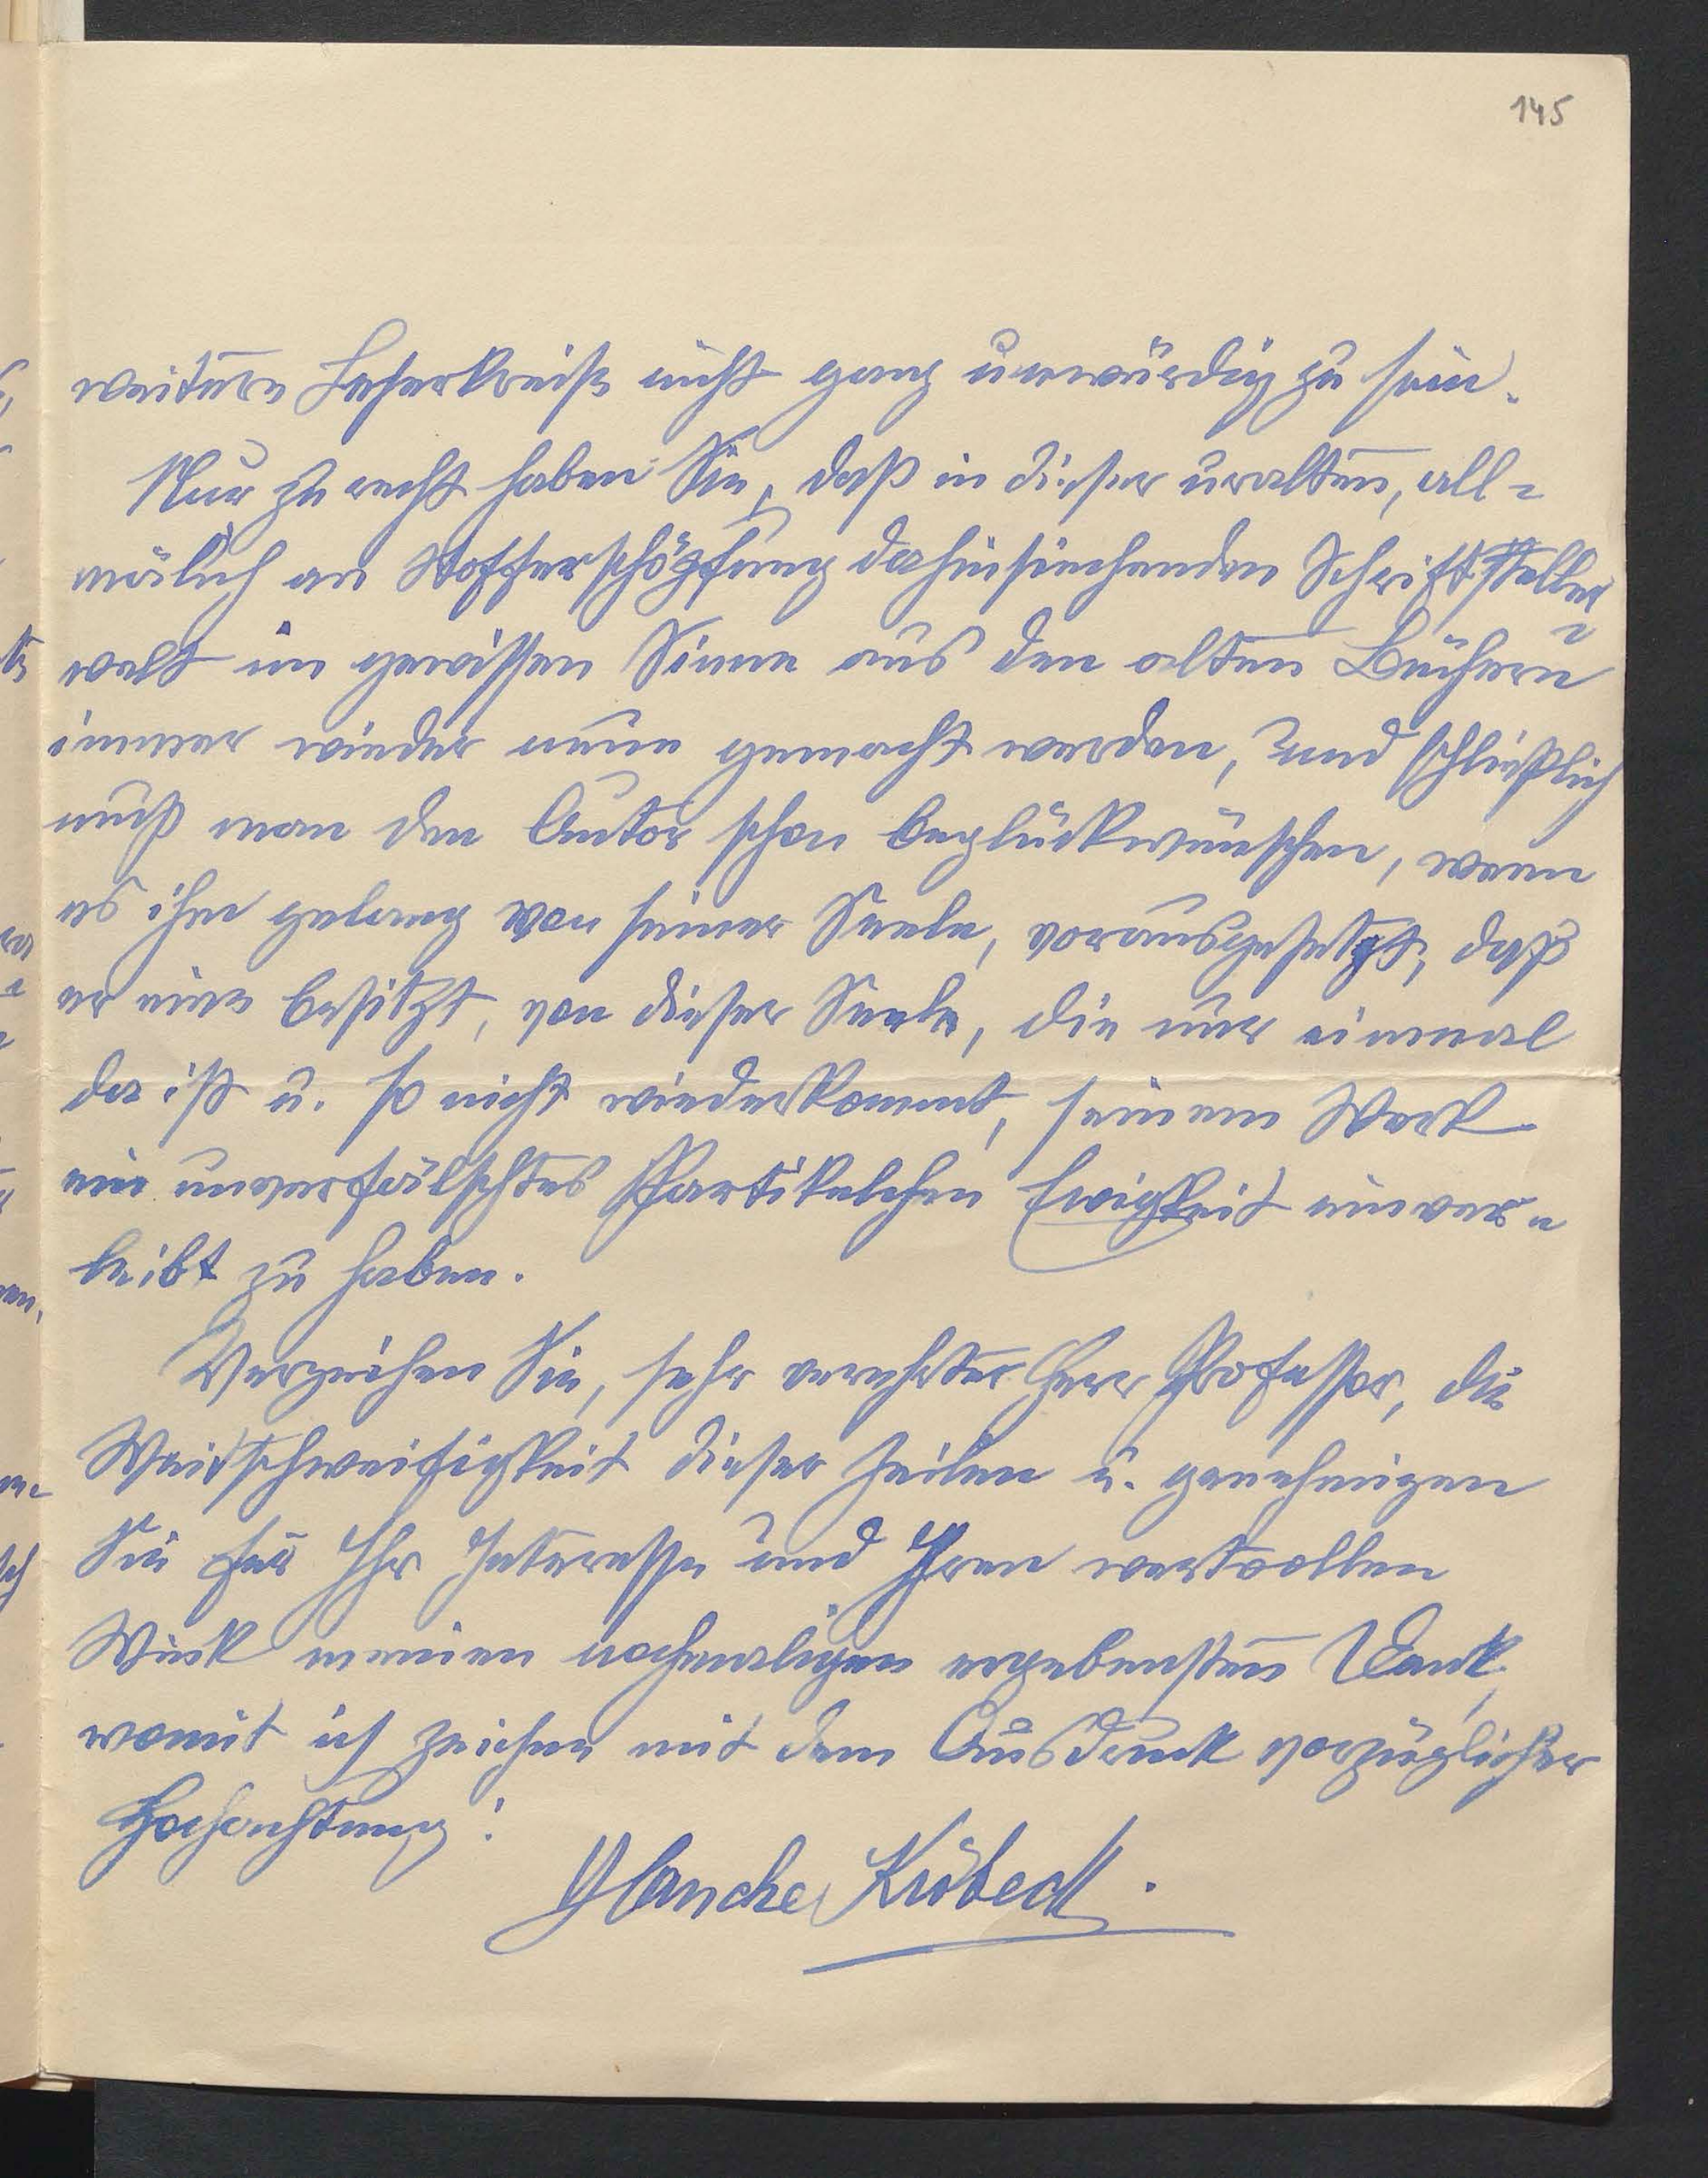 145
weiteren Leserkreise nicht ganz unwürdig zu sein.
Nur zu recht haben Sie, daß in dieser uralten, all-
mälich an Stofferschöpfung dahinsiechenden Schriftsteller-
welt im gewissen Sinne aus den alten Büchern
immer wieder neue gemacht werden, und schließlich
muß man den Autor schon beglückwünschen, wenn
es ihm gelang von seiner Seele, vorausgesetzt, daß
er eine besitzt, von dieser Seele, die nur einmal
da ist u. so nicht wiederkommt, seinem Werk
ein unverfälschtes Partikelchen Ewigkeit einver-
leibt zu haben.
Verzeihen Sie, sehr verehrter Herr Professor, die
Weitschweifigkeit dieser Zeilen u. genehmigen
Sie für Ihr Interesse und Ihren wertvollen
Wink meinen nochmaligen ergebensten Dank,
womit ich zeichne mit dem Ausdruck vorzüglicher
Hochachtung:
Blanche Kübeck.